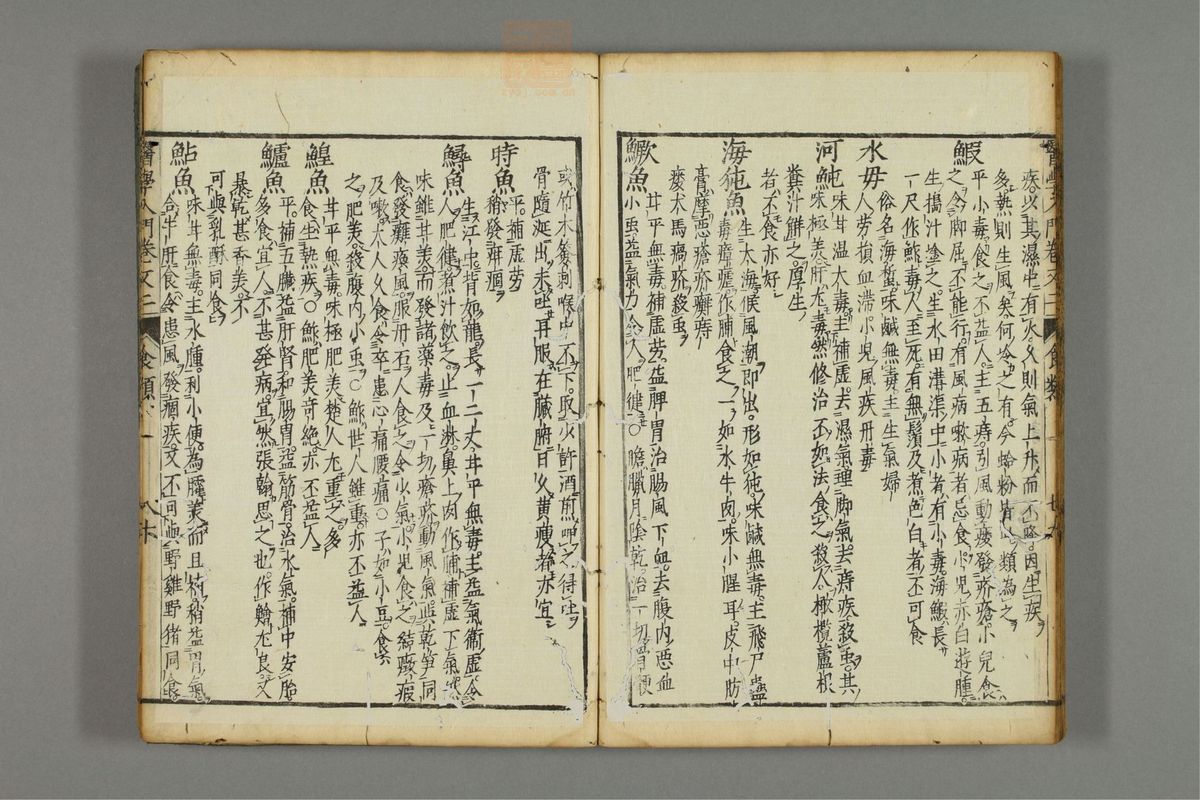 多熱則生風矣何㕮之有今蛤粉皆以類為之
鰕
平小毒食之不益人主五痔引風動嗽發疥瘡小兒食
之令脚屈不能行有風病嗽病者忌食小兒赤白遊腫
生搗汁塗之生水田溝渠中小者有小毒海鰕長
一尺作鮓毒人至死有無鬚及煮色白者不可食
水母
俗名海蜇味鹹無毒主生氣婦
人勞損血滯小兒風疾丹毒
河魨
味甘溫大毒主補虛去濕氣理脚氣去痔疾殺虫其
味極美肝尤毒然修治不如法食之殺人橄欖蘆根
糞汁解之厚生
者不食亦好
海㹠魚
生大海候風潮即出形如㹠味鹹無毒主飛尸蠱
毒瘴瘧作脯食之一如水牛肉味小腥耳皮中肪
膏摩惡瘡疥癬痔
瘻犬馬瘑疥殺虫
鱖魚
甘平無毒補虛勞益脾胃治腸風下血去腹內惡血
小虫益氣力令人肥健○膽臘月陰乾治一切骨鯁
或竹木簽刺喉中不下取少許酒煎呷之得吐
骨隨涎出未吐再服在臟腑日久黃瘦者亦宜
時魚
平補虛勞
稍發疳痼
鱘魚
生江中背如龍長一二丈甘平無毒主益氣補虛令
人肥健煮汁飲之止血淋鼻上肉作脯補虛下氣然
味雖甘美而發諸藥毒及一切瘡疥動風氣與乾笋同
食發癱瘓風服丹石人食之令少氣小兒食之結癥瘕
及嗽大人久食令卒患心痛腰痛○子如小豆食
之肥美殺腹內小虫○鮓世人雖重亦不益人
鰉魚
甘平無毒味極肥美楚人尤重之多
食生熱疾○鮓肥美奇絕亦不益人
鱸魚
平補五臟益肝腎和腸胃益筋骨治水氣補中安胎
多食宜人不甚發病宜然張翰思之也作鱠尤良又
暴乾甚香美不
可與乳酥同食
鮎魚
味甘無毒主水腫利小便為臛美而且補稍益胃氣
合牛肝食令患風發痼疾又不可與野雞野猪同食